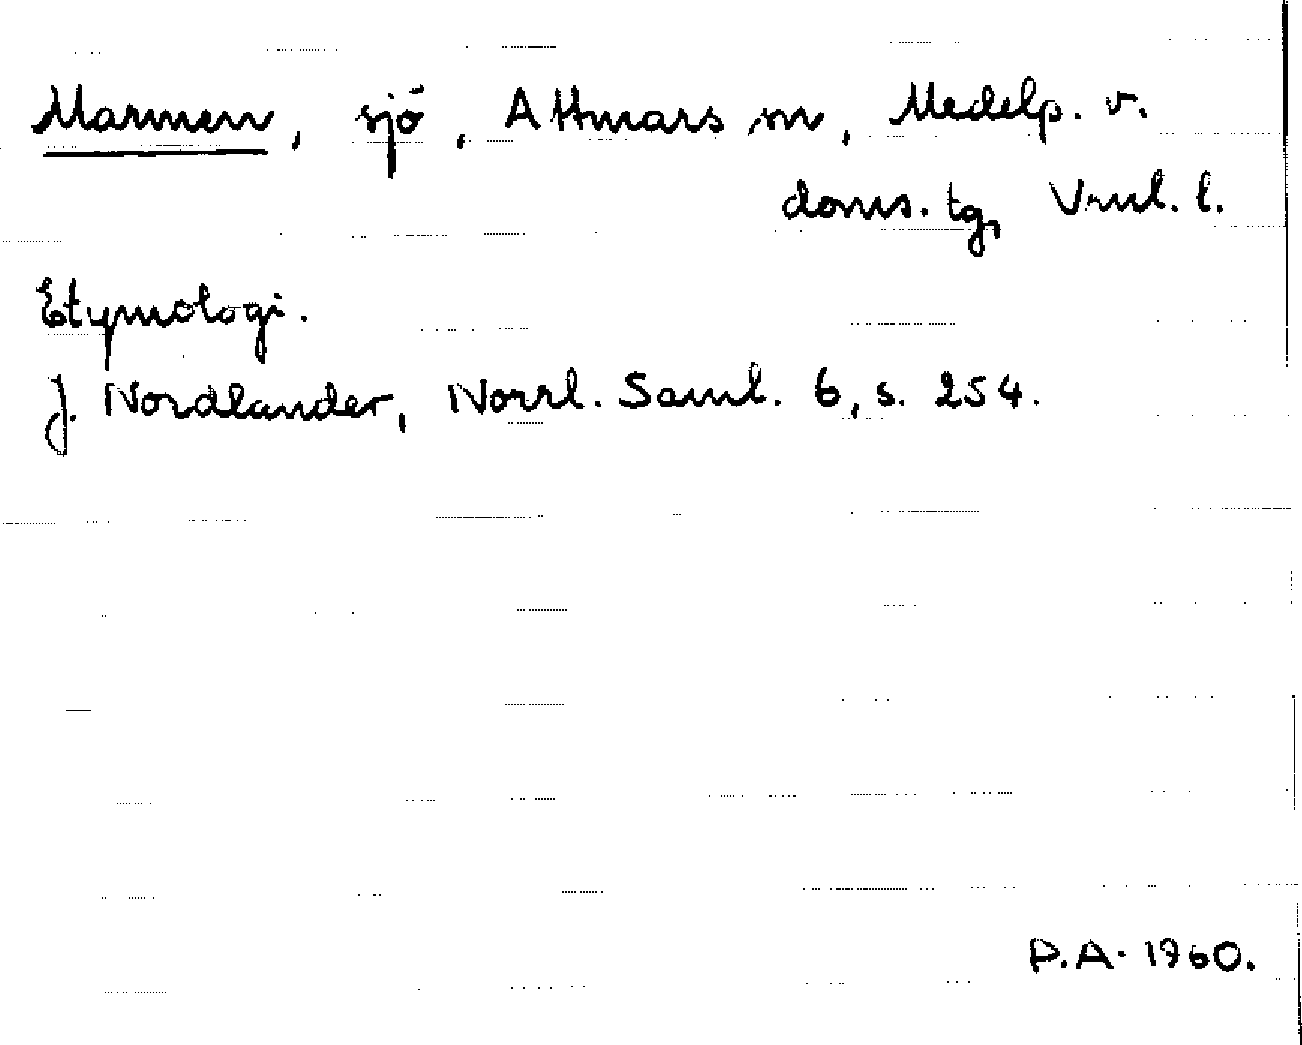 Marmen, sjö, Attmars sn, Medelp. v.
doms. tg, Vrnl. l.
Etymologi.
J. Nordlander, Norrl. Saml. 6, s. 254.
P.A. 1960.